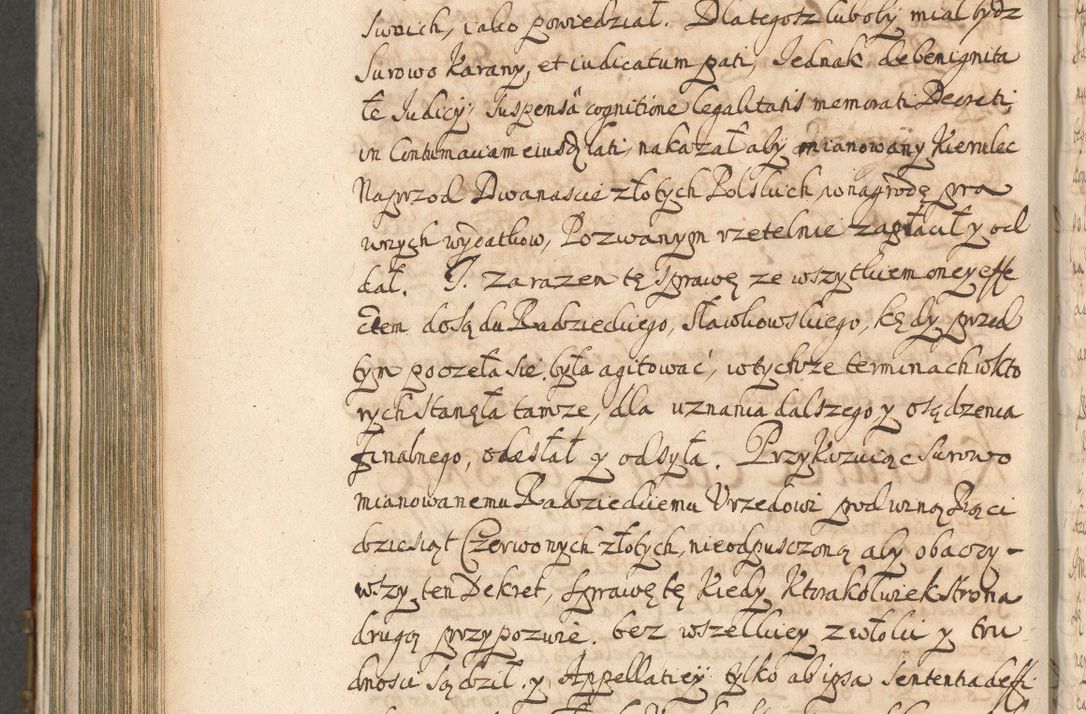 swoich, iako powiedział. Dlategosz luboby miał bydz
surowo karany, et iudicatum pati, Jednak de benignita
te Judicÿ, suspensâ cognitione legalitatis memorati Decreti,
in Contumaciam eiusd lati, nakazał aby mianowany Kierulec
Naprzod Dwanascie złotych Polskich, wnagrodę pra
wnych wydatkow, Pozwanym rzetelnie zapłacił y od
dał. J. zarazem tę sprawę ze wszytkiem oney effe
ctem do sądu Radzieckiego, Sławkowskiego, kędy przed
tym poczeła się była agitować, wtychze terminach w kto
rych stanęła tamze, dla uznania dalszego y osądzenia
finalnego, odesłał y odsyła. Przykazuiąc surowo
mianowanemu Radzieckiemu Vrzedowi pod winą Pięci
dziesiąt Czerwonych złotych, nieodpuszczoną aby obaczy-
wszy ten Dekret, sprawę tę kiedy Ktorakolwiek strona
drugą przypozwie. bez wszelkiey zwłoki y tru
dnosci sądził. y Appellatiey tylko ab ipsa sententia deffi